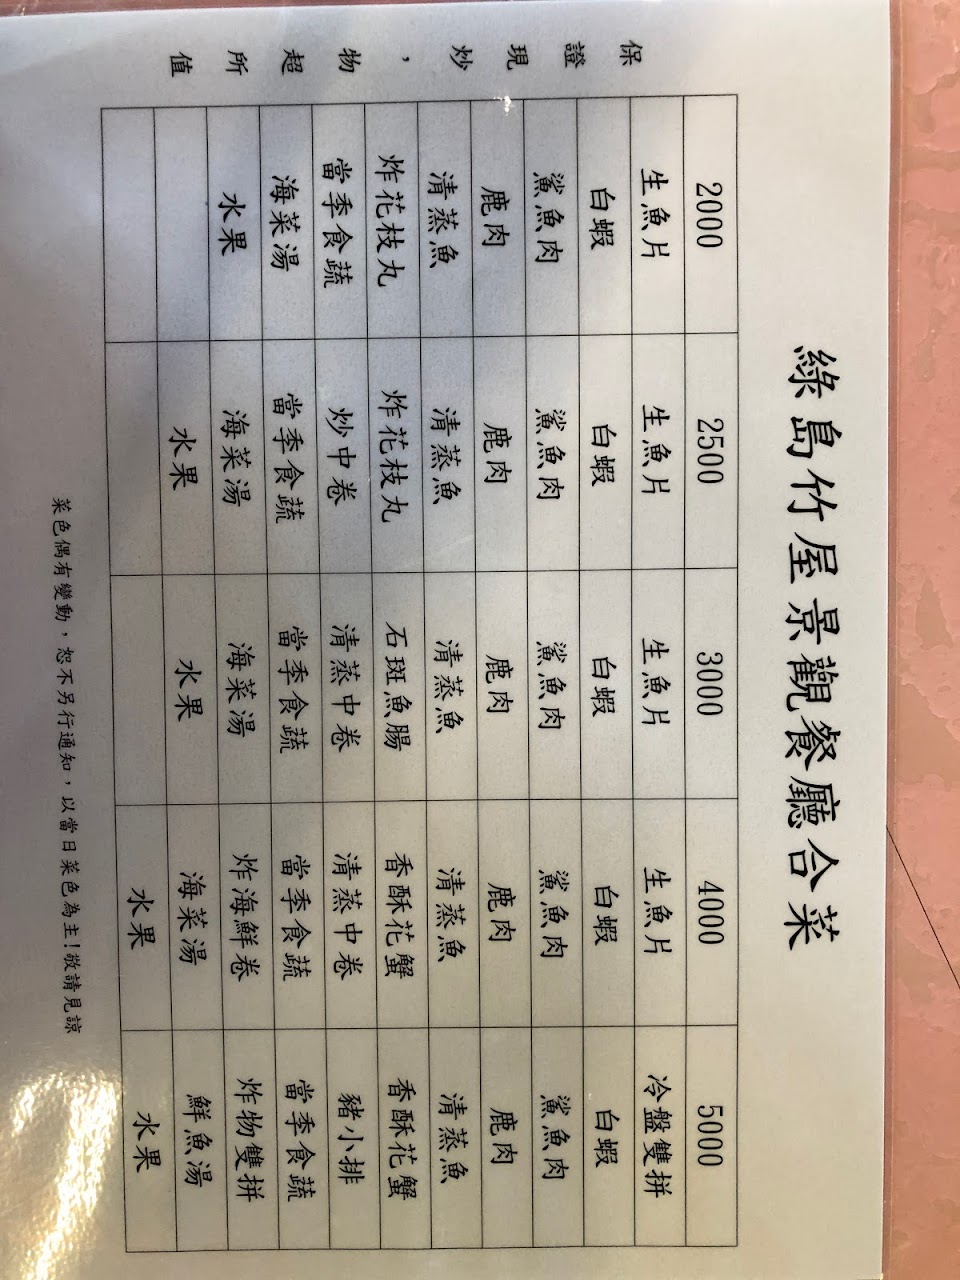 綠島竹屋景觀餐廳合菜
保證現炒，物超所值
2000 2500 3000 4000 5000
生魚片 生魚片 生魚片 生魚片 冷盤雙拼
白蝦 白蝦 白蝦 白蝦 白蝦
鯊魚肉 鯊魚肉 鯊魚肉 鯊魚肉 鯊魚肉
鹿肉 鹿肉 鹿肉 鹿肉 鹿肉
清蒸魚 清蒸魚 清蒸魚 清蒸魚 清蒸魚
炸花枝丸 炸花枝丸 石斑魚腸 香酥花蟹 香酥花蟹
當季食蔬 炒中卷 清蒸中卷 清蒸中卷 豬小排
海菜湯 當季食蔬 當季食蔬 當季食蔬 當季食蔬
水果 海菜湯 海菜湯 炸海鮮卷 炸物雙拼
水果 水果 海菜湯 鮮魚湯
水果 水果
菜色偶有變動，恕不另行通知，以當日菜色為主！敬請見諒